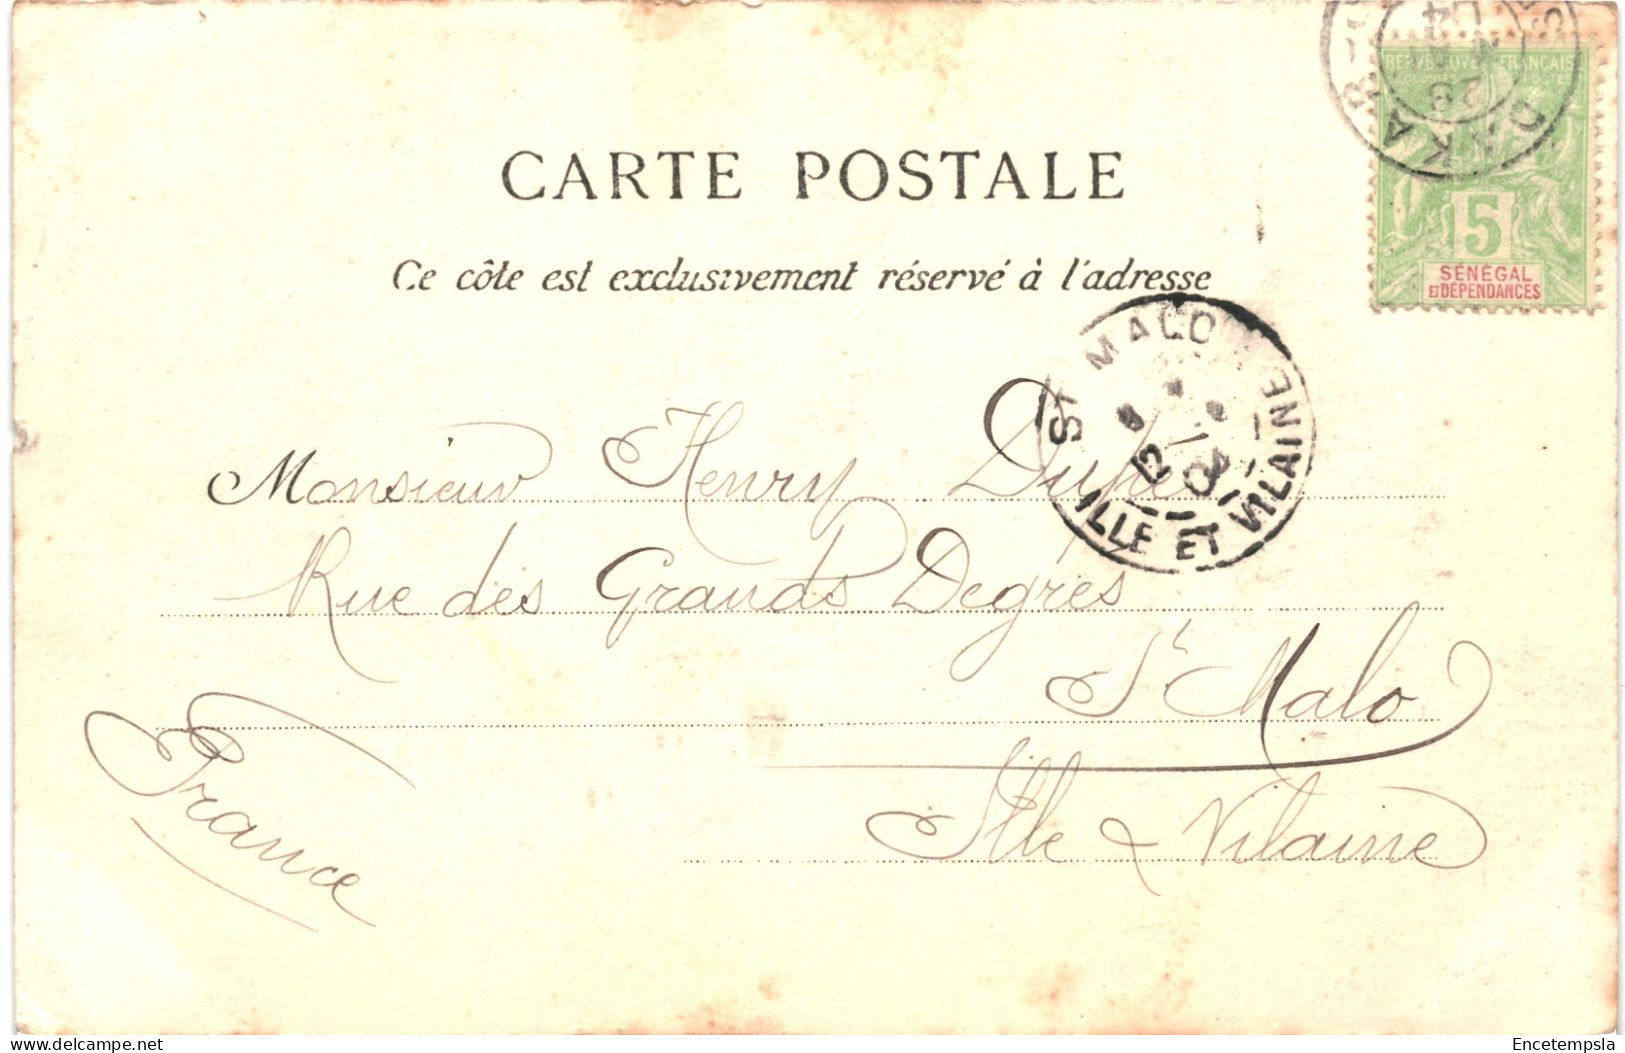 CARTE POSTALE
Ce côte est exclusivement réservé à l'adresse
REPUBLIQUE FRANCAISE
COLONIES POSTES
5
SÉNÉGAL
ET DÉPENDANCES
DAKAR
ST MALO
ILLE ET VILAINE
Monsieur Henry
Rue des Grands Degrés
St Malo
Ille & Vilaine
France
Delcampe.net
Encetempsla